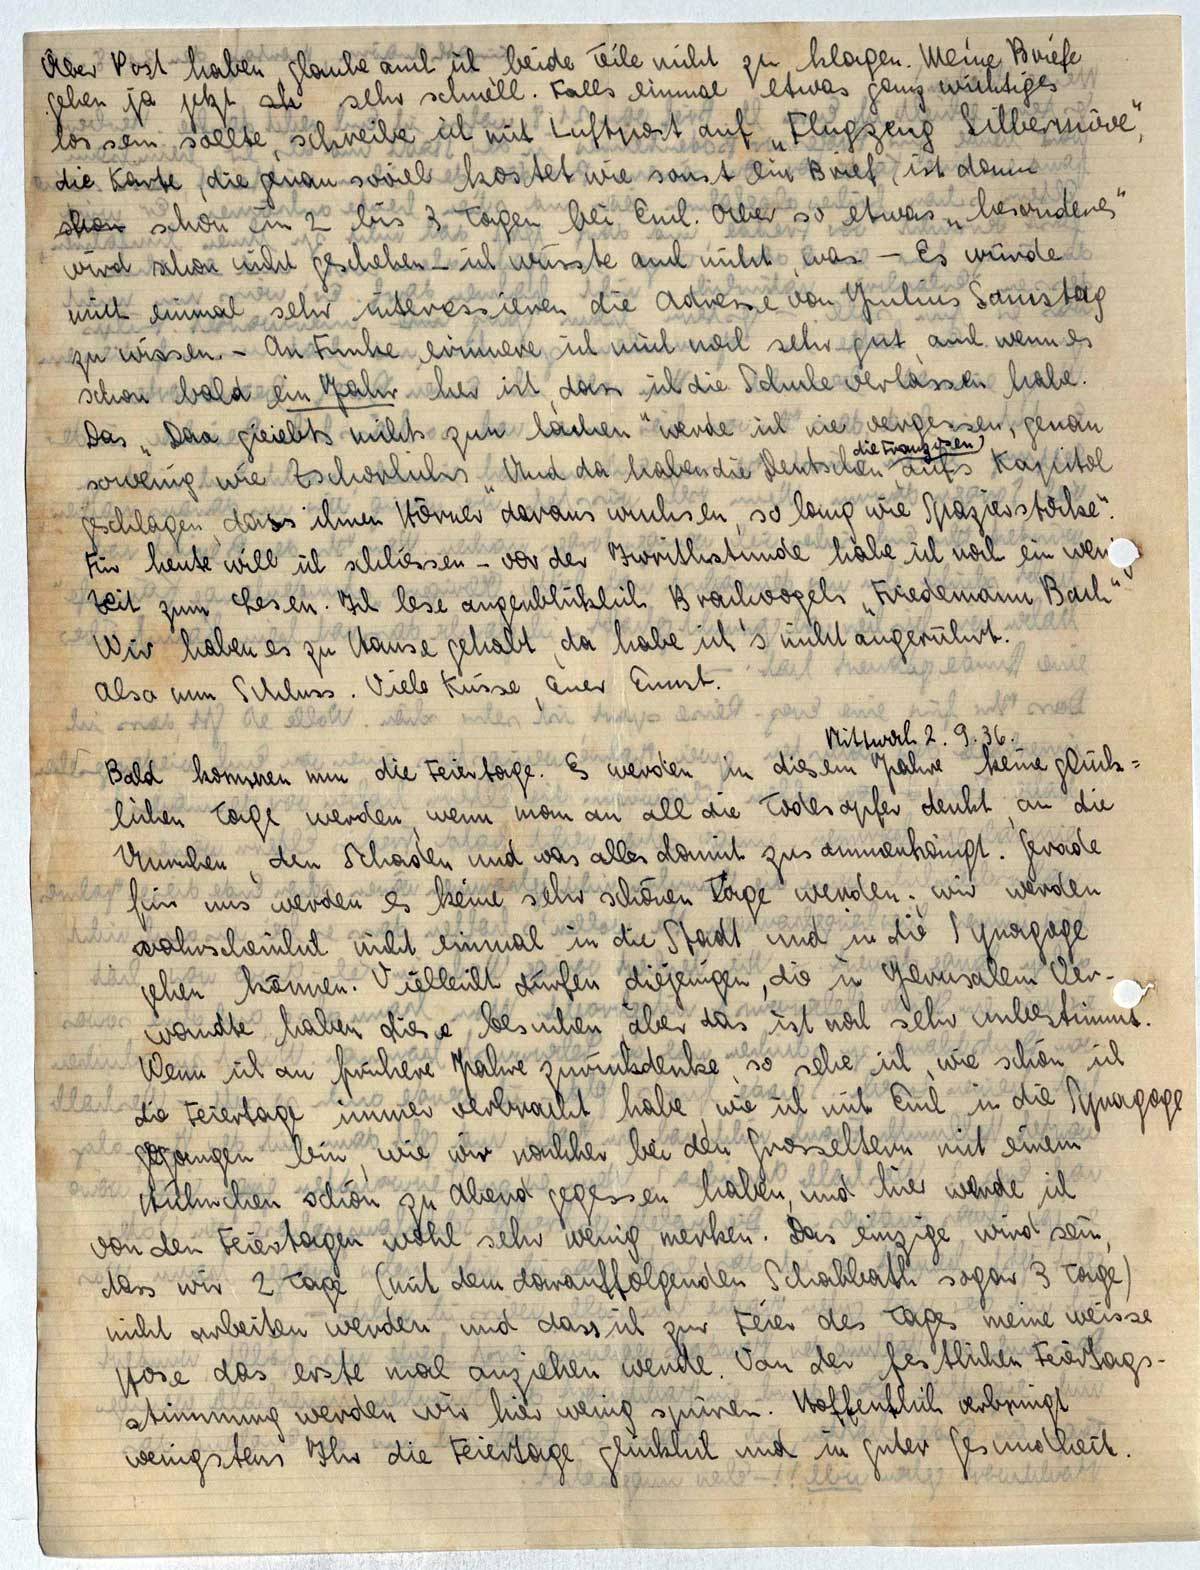 Über Post haben, glaube auch ich beide Teile nicht zu klagen. Meine Briefe
gehen ja jetzt sehr schnell. Falls einmal etwas ganz wichtiges
los sein sollte, schreibe ich mit Luftpost auf „Flugzeug Silbermöve",
die Karte, die genau soviel kostet wie sonst ein Brief, ist dann
schon schon in 2 bis 3 Tagen bei Euch. Aber so etwas „besonderes"
wird schon nicht geschehen – ich wüsste auch nicht was – Es würde
mich einmal sehr interessieren die Adresse von Julius Samstag
zu wissen. – An Funke erinnere ich mich noch sehr gut, auch wenn es
schon bald ein Jahr her ist, dass ich die Schule verlassen habe.
Das „Daa gieiebts nichts zun lachen" werde ich nie vergessen, genau
sowenig wie Zschorlichs „Und da haben die Deutschen die Franzosen aufs Kapitol
geschlagen, dass ihnen Hörner daraus wuchsen, so lang wie Spazierstöcke".
Für heute will ich schliessen – vor der Iwrithstunde habe ich noch ein wenig
Zeit zum Lesen. Ich lese augenblicklich Brachvogels „Friedemann Bach"
Wir haben es zu Hause gehabt, da habe ich's nicht angerührt.
Also nun Schluss. Viele Küsse, Euer Ernst.
Mittwoch 2. 9. 36.
Bald kommen nun die Feiertage. Es werden in diesem Jahre keine glück=
lichen Tage werden, wenn man an all die Todesopfer denkt, an die
Unruhen, den Schaden und was alles damit zusammenhängt. Gerade
für uns werden es keine sehr schönen Tage werden; wir werden
wahrscheinlich nicht einmal in die Stadt und in die Synagoge
gehen können. Vielleicht dürfen diejenigen, die in Jerusalem Ver-
wandte haben diese besuchen aber das ist noch sehr unbestimmt.
Wenn ich an frühere Jahre zurückdenke, so sehe ich, wie schön ich
die Feiertage immer verbracht habe, wie ich mit Euch in die Synagoge
gegangen bin, wie wir nachher bei den Grosseltern mit einem
Hühnchen schön zu Abend gegessen haben, und hier werde ich
von den Feiertagen wohl sehr wenig merken. Das einzige wird sein,
dass wir 2 Tage (mit dem darauffolgenden Schabbath sogar 3 Tage)
nicht arbeiten werden und dass ich zur Feier des Tages meine weisse
Hose das erste mal anziehen werde. Von der festlichen Feiertags-
stimmung werden wir hier wenig spüren. Hoffentlich verbringt
wenigstens Ihr die Feiertage glücklich und in guter Gesundheit.